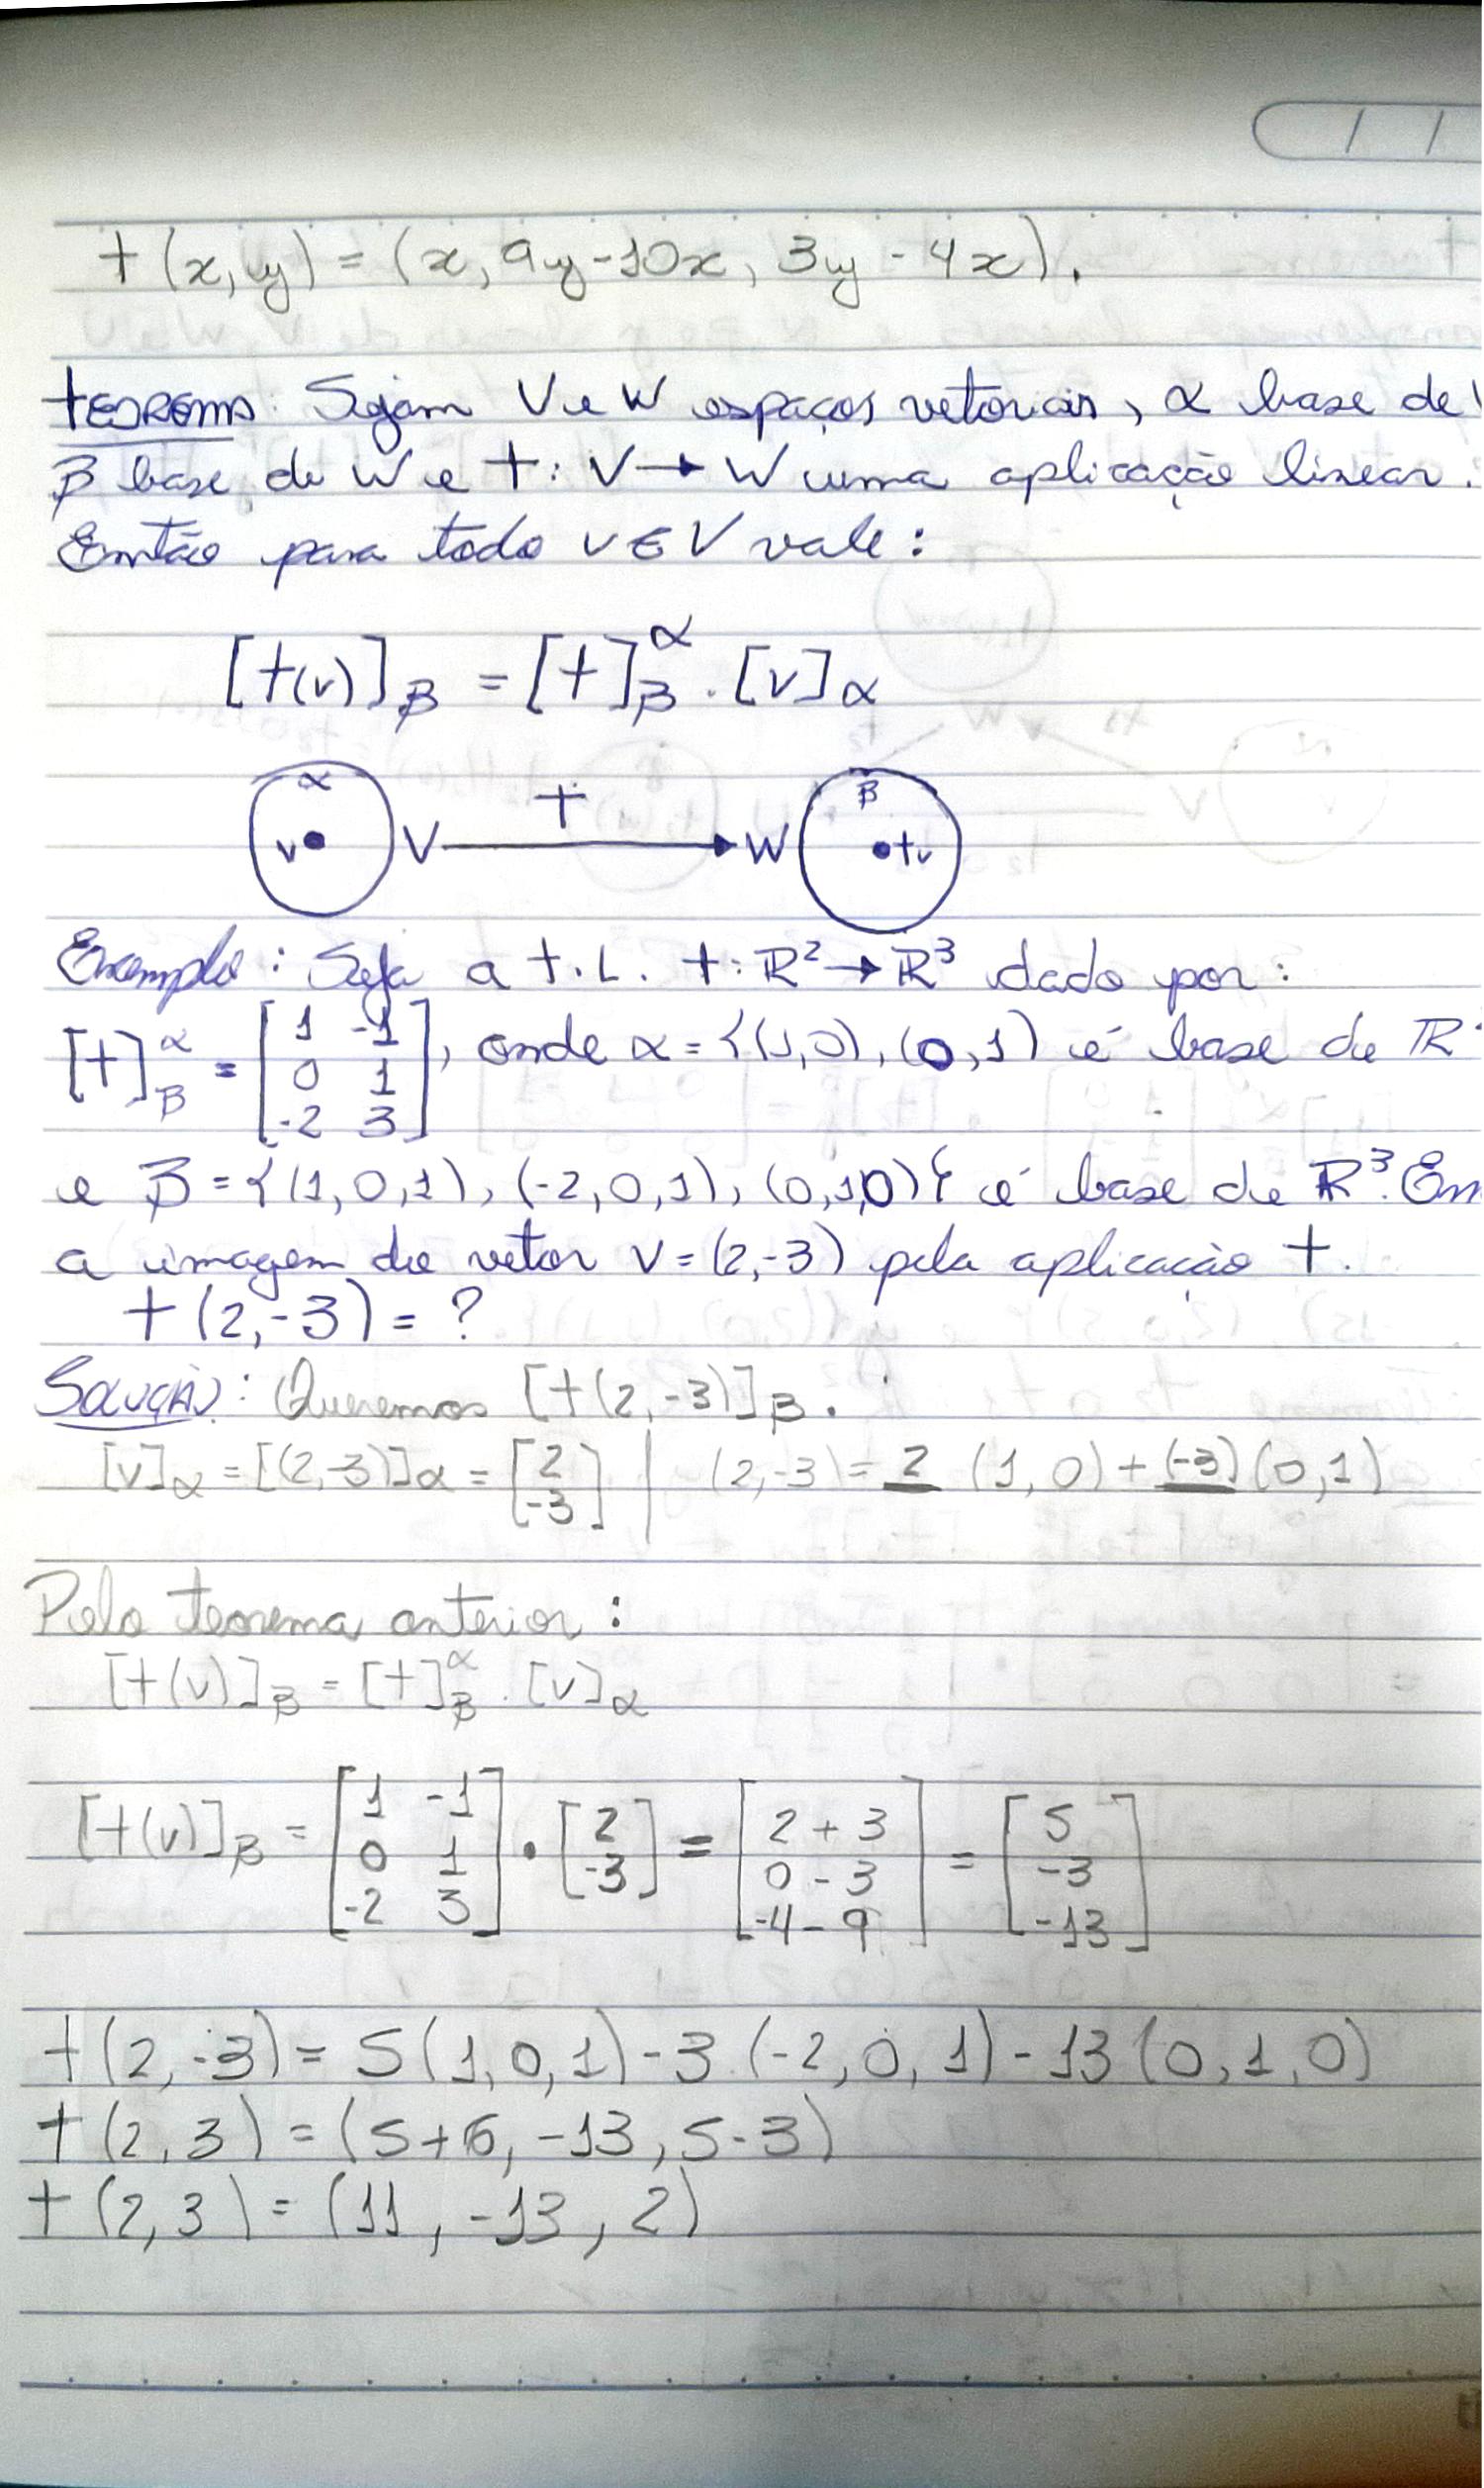 / /
t(x,y) = (x, 9y-10x, 3y-4x).
TEOREMA: Sejam V e W espaços vetoriais, α base de
β base de W e t: V → W uma aplicação linear.
Então para todo v ∈ V vale:
[t(v)]β = [t]αβ . [v]α
α β
v V t W tv
Exemplo: Seja a t.L. t: R² → R³ dado por:
[t]αβ = [1 -1; 0 1; -2 3], onde α = {(1,0), (0,1) é base de R²
e β = {(1,0,1), (-2,0,1), (0,1,0)} é base de R³. En
a imagem do vetor v = (2,-3) pela aplicação t.
t(2,-3) = ?
SOLUÇÃO: Queremos [t(2,-3)]β.
[v]α = [(2,-3)]α = [2; -3] | (2,-3) = 2 (1,0) + (-3)(0,1)
Pelo teorema anterior:
[t(v)]β = [t]αβ . [v]α
[t(v)]β = [1 -1; 0 1; -2 3] . [2; -3] = [2+3; 0-3; -4-9] = [5; -3; -13]
t(2,-3) = 5(1,0,1) - 3.(-2,0,1) - 13(0,1,0)
t(2,3) = (5+6, -13, 5-3)
t(2,3) = (11, -13, 2)